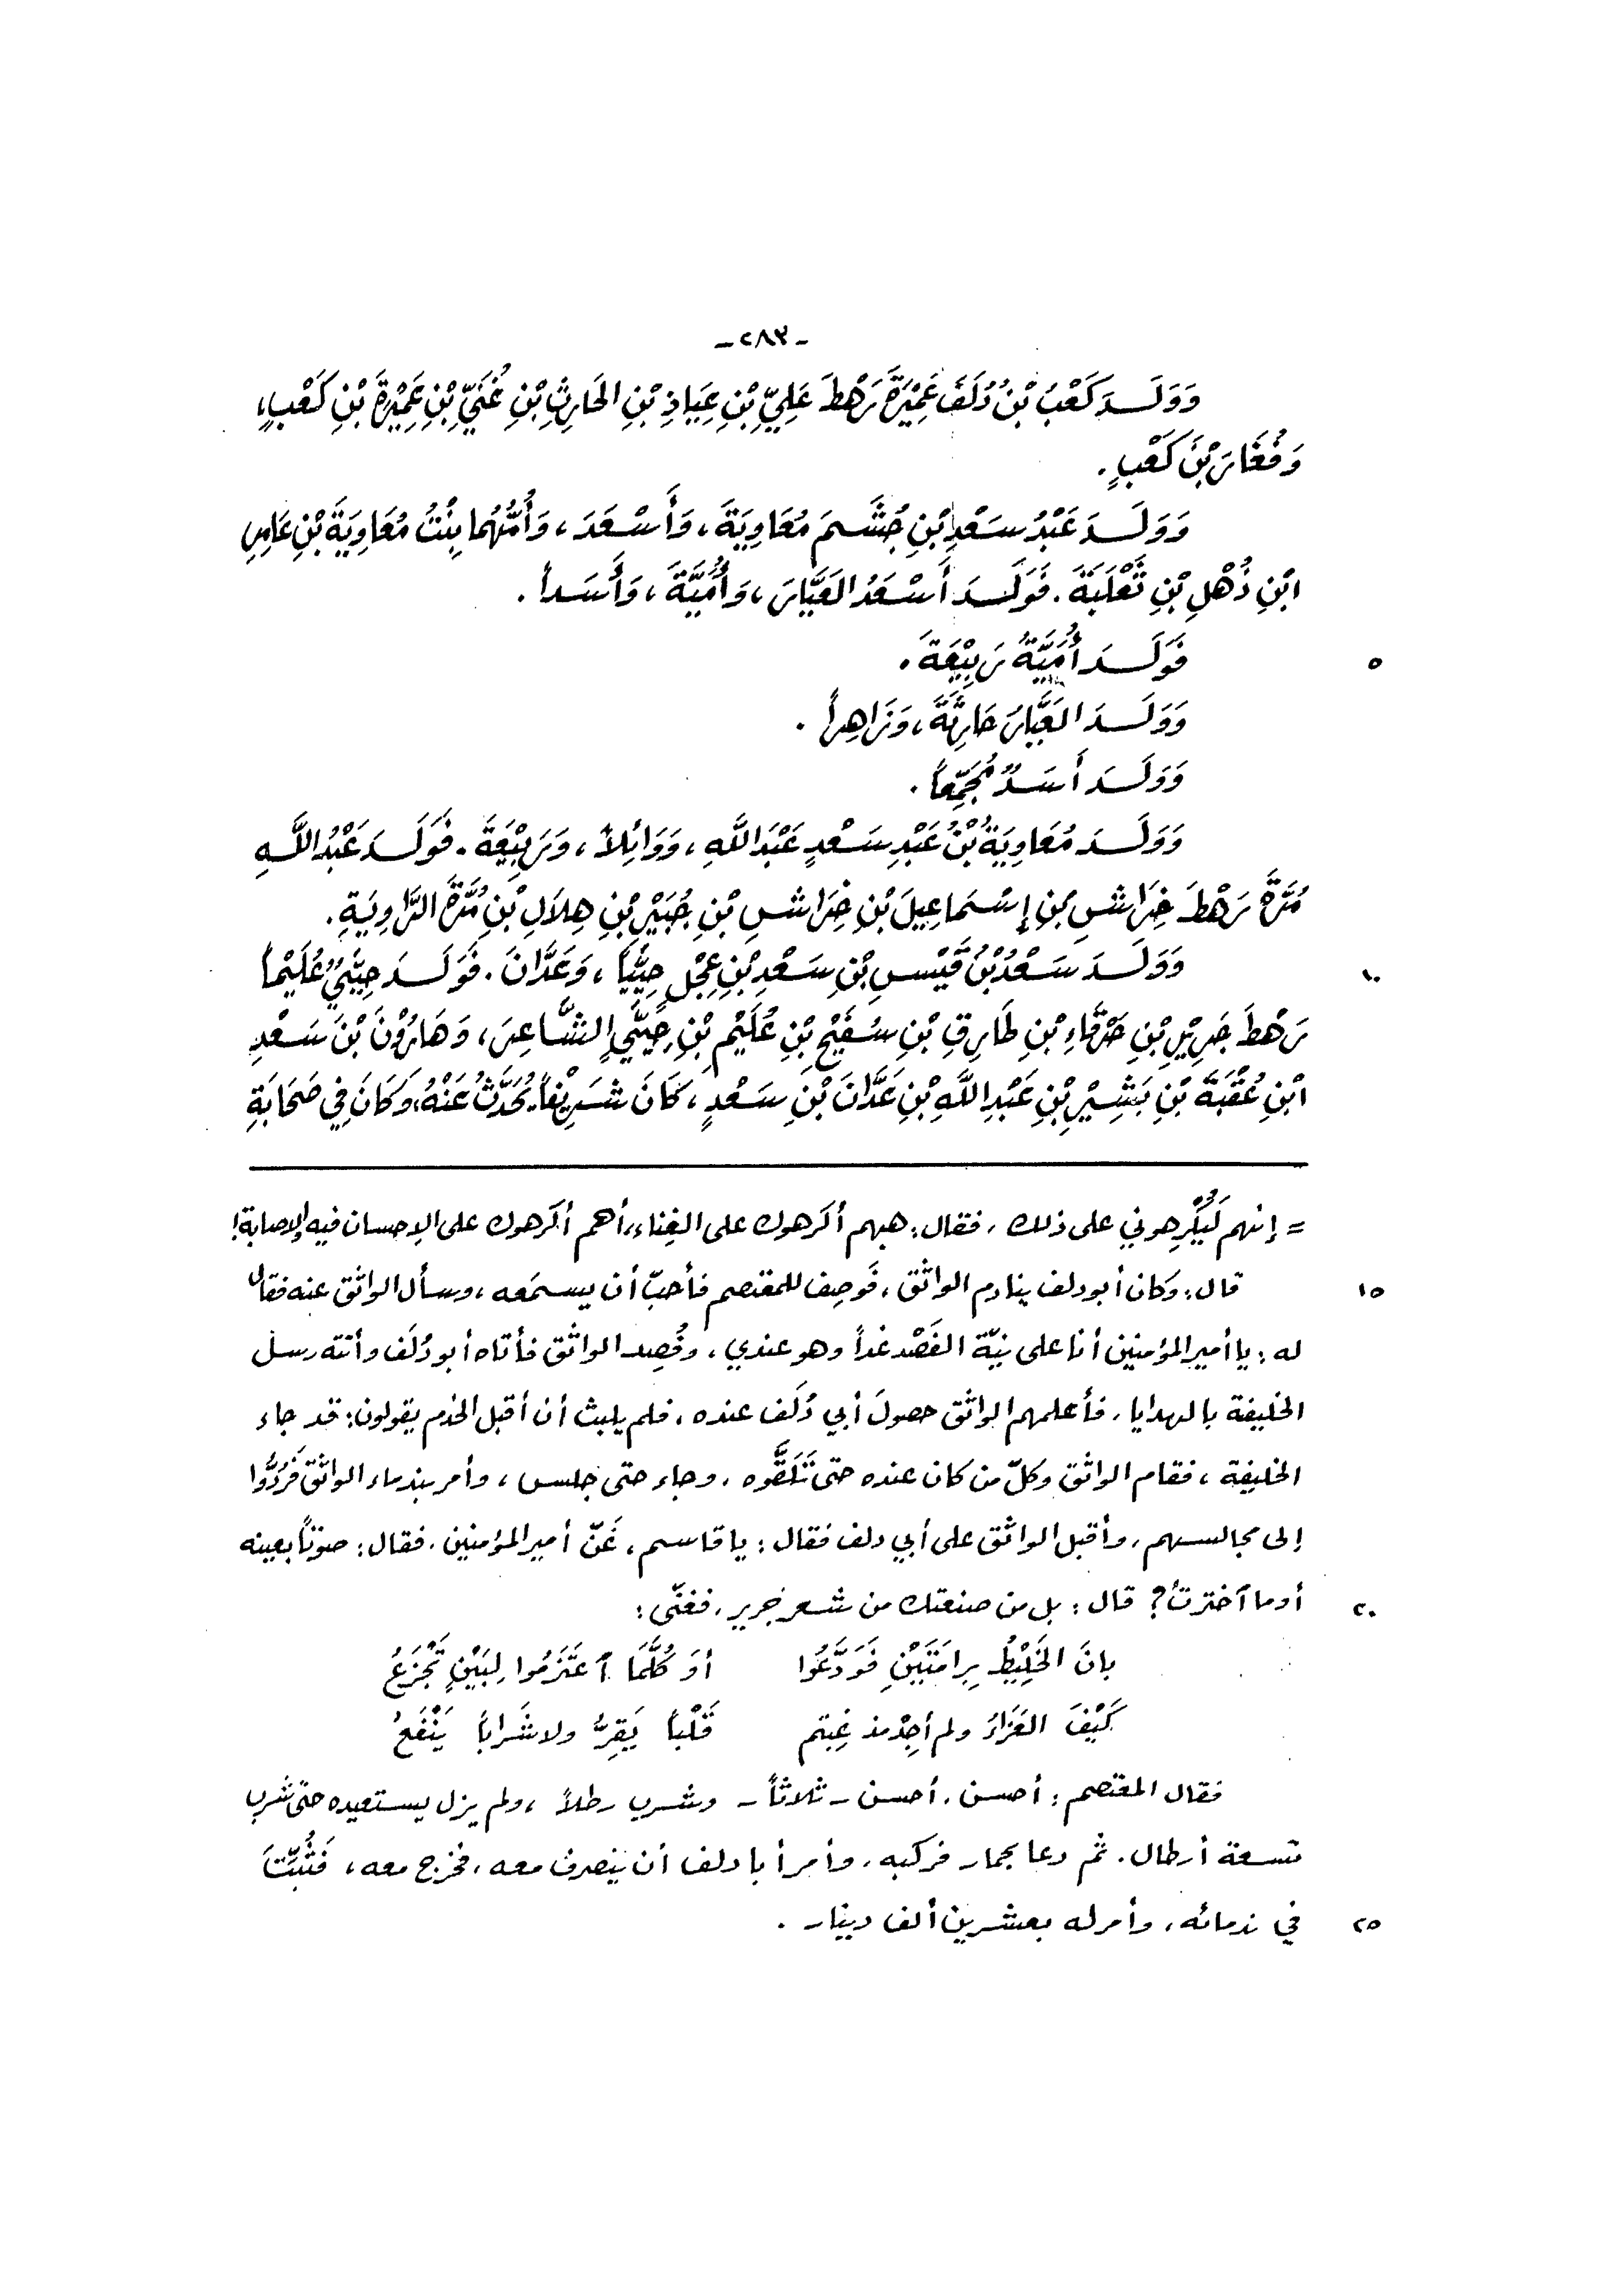 - ٢٨٣ -
وَوَلَدَ كَعْبُ بْنُ دُلَفَ عَمِيْرَةَ رَهْطَ عَلِيِّ بْنِ عِيَاذِ بْنِ الحَارِثِ بْنِ غُنَيِّ بْنِ عَمِيْرَةَ بْنِ كَعْبٍ،
وَفُغَارَ بْنَ كَعْبٍ .
وَوَلَدَ عَبْدُ سَعْدِ بْنِ جُشَمَ مُعَاوِيَةَ ، وَأَسْعَدَ ، وَأُمُّهُما بِنْتُ مُعَاوِيَةَ بْنِ عَامِرِ
ابْنِ ذُهْلِ بْنِ ثَعْلَبَةَ . فَوَلَدَ أَسْعَدُ العَبَّاسَ ، وَأُمَيَّةَ ، وَأَسَداً .
٥ فَوَلَدَ أُمَيَّةُ رَبِيْعَةَ .
وَوَلَدَ العَبَّاسُ حَارِثَةَ ، وَزَاهِراً .
وَوَلَدَ أَسَدٌ مُجَمِّعاً .
وَوَلَدَ مُعَاوِيَةُ بْنُ عَبْدِ سَعْدٍ عَبْدَ اللَّهِ ، وَوَائِلاً ، وَرَبِيْعَةَ . فَوَلَدَ عَبْدُ اللَّهِ
مُرَّةَ رَهْطَ خِرَاشِ بْنِ إِسْمَاعِيلَ بْنِ خِرَاشِ بْنِ جُبَيْرِ بْنِ هِلاَلِ بْنِ مُرَّةَ الرَّاوِيَةِ .
١٠ وَوَلَدَ سَعْدُ بْنُ قَيْسِ بْنِ سَعْدِ بْنِ عِجْلٍ حِيَيّاً ، وَعَدَّانَ . فَوَلَدَ حِيَيٌّ عُلَيْماً
رَهْطَ جَرِيْرِ بْنِ خَرْقَاءِ بْنِ طَارِقِ بْنِ سُفَيْحِ بْنِ عُلَيْمِ بْنِ حِيَيٍّ الشَّاعِرَ ، وَهَارُوْنَ بْنَ سَعْدِ
ابْنِ عُقْبَةَ بْنِ بَشِيْرِ بْنِ عَبْدِ اللَّهِ بْنِ عَدَّانَ بْنِ سَعْدٍ ، كَانَ شَرِيْفاً يُحَدَّثُ عَنْهُ ، وَكَانَ فِي صَحَابَةِ
= إنهم لَيُكْرِهوني على ذلك ، فقال : هبهم أكرهوك على الغِناء ، أهم أكرهوك على الإحسان فيه والإصابة !
١٥ قال : وكان أبو دلف ينادم الواثق ، فَوصِف للمعتصم فأحبّ أن يسمَعه ، وسأل الواثق عنه فقال
له : يا أمير المؤمنين أنا على نيّة الفَصْد غداً وهو عندي ، وفُصِد الواثق فأتاه أبو دُلَف وأتته رسل
الخليفة بالهدايا ، فأعلمهم الواثق حصولَ أبي دُلَف عنده ، فلم يلبث أن أقبل الخدم يقولون : قد جاء
الخليفة ، فقام الواثق وكلّ من كان عنده حتى تَلَقَّوه ، وجاء حتى جلس ، وأمر بندماء الواثق فَرُدُّوا
إلى مجالسهم ، وأقبل الواثق على أبي دلف فقال : يا قاسم ، غَنّ أمير المؤمنين ، فقال : صوتاً بعينه
٢٠ أو ما ٱخترتُ ؟ قال : بل من صنعتك من شعر جرير ، فغنّى :
بانَ الخَلِيْطُ بِرامَتَيْنِ فَوَدَّعُوا أوَ كُلَّمَا ٱعتَزَمُوا لِبَيْنٍ تَجْزَعُ
كَيْفَ العَزَاءُ ولم أجِدْ مذ غِبتم قَلْباً يَقِرُّ ولا شَراباً يَنْفَعُ
فقال المعتصم : أحسن ، أحسن - ثلاثاً - وشرب رطلاً ، ولم يزل يستعيده حتى شرب
تسعة أرطال . ثم دعا بحمار فركبه ، وأمر أبا دلف أن ينصرف معه ، فخرج معه ، فَثُبِّتَ
٢٥ في ندمائه ، وأمر له بعشرين ألف دينار .